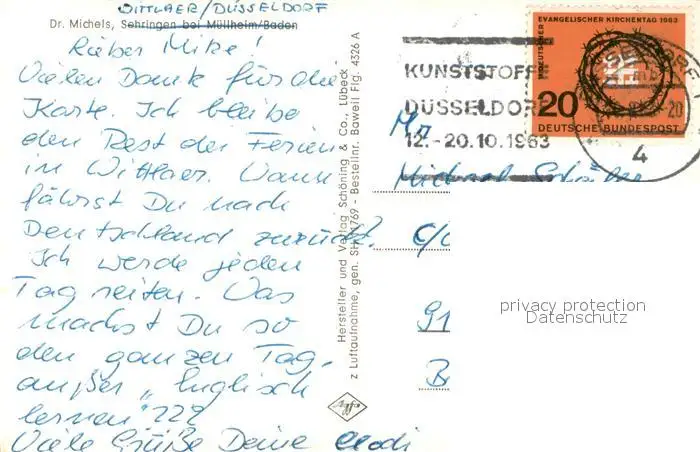 WITTLAER/DÜSSELDORF
Dr. Michels, Sehringen bei Müllheim/Baden
Lieber Mike!
Vielen Dank für die
Karte. Ich bleibe
den Rest der Ferien
in Wittlaer. Wann
fährst Du nach
Deutschland zurück?
Ich werde jeden
Tag reiten. Was
machst Du so
den ganzen Tag,
außer „Englisch
lernen"???
Viele Grüße Deine
Hersteller und Verlag Schöning & Co., Lübeck
z Luftaufnahme, gen. SH 1769 - Bestellnr. Baweil Flg. 4326 A
Agfa
KUNSTSTOFFE
DÜSSELDORF
12.-20.10.1963
DEUTSCHER EVANGELISCHER KIRCHENTAG 1963
20
DEUTSCHE BUNDESPOST
-20
4
Mr
Michael
c/o
91
B
privacy protection
Datenschutz